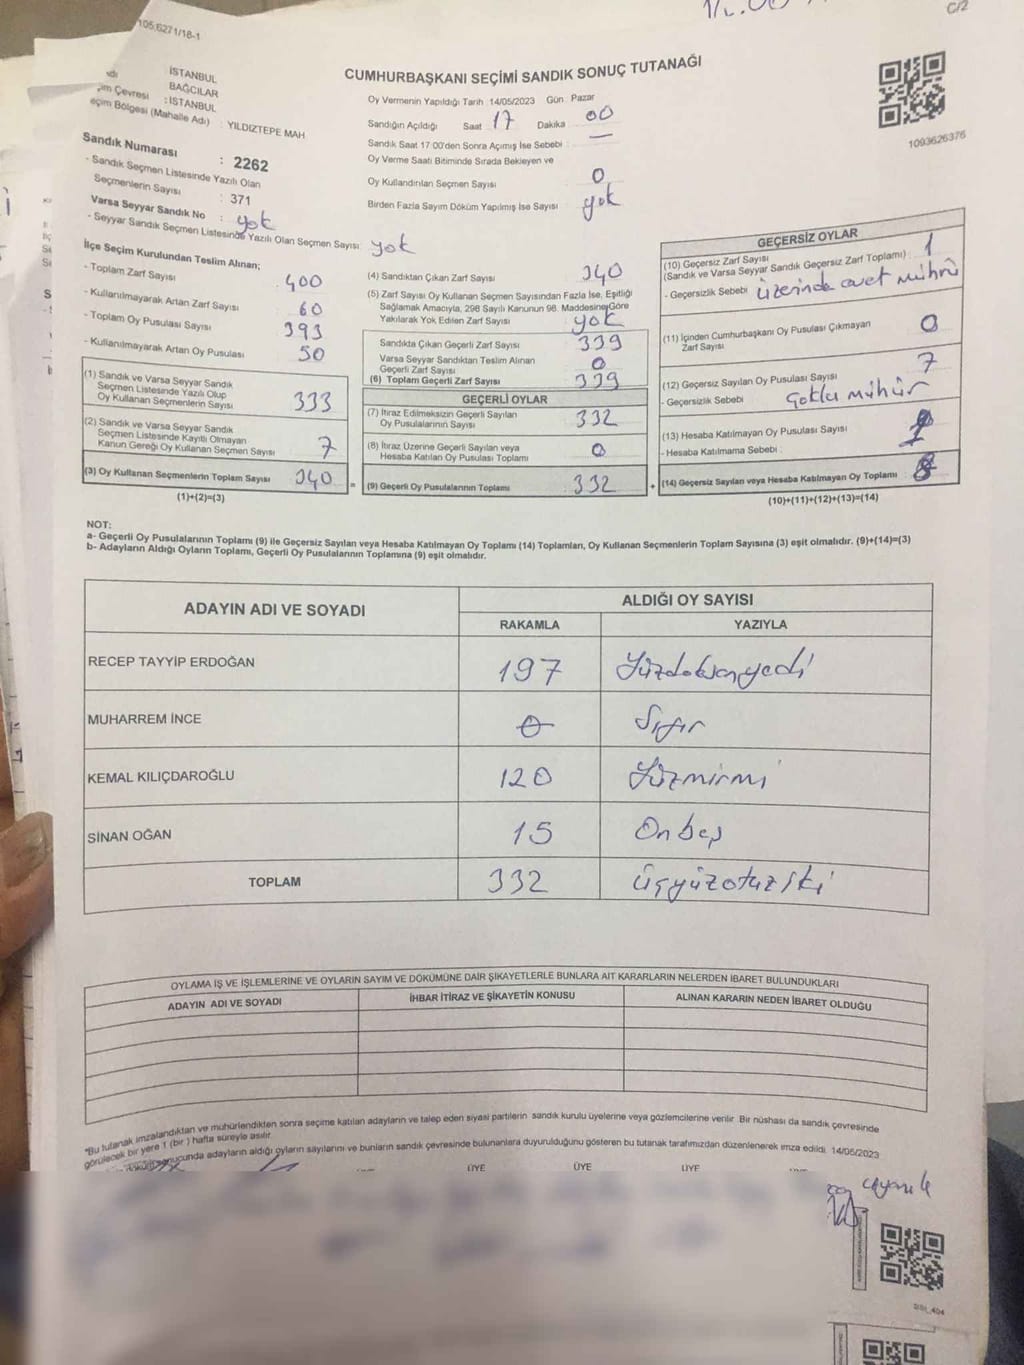 105.6271/18-1
C/2
CUMHURBAŞKANI SEÇİMİ SANDIK SONUÇ TUTANAĞI
İSTANBUL
BAĞCILAR
im Çevresi : İSTANBUL
eçim Bölgesi (Mahalle Adı) : YILDIZTEPE MAH
Sandık Numarası : 2262
- Sandık Seçmen Listesinde Yazılı Olan
Seçmenlerin Sayısı : 371
Varsa Seyyar Sandık No : yok
- Seyyar Sandık Seçmen Listesinde Yazılı Olan Seçmen Sayısı: yok
Oy Vermenin Yapıldığı Tarih :14/05/2023 Gün : Pazar
Sandığın Açıldığı Saat : 17 Dakika : 00
Sandık Saat 17:00'den Sonra Açımış İse Sebebi : —
Oy Verme Saati Bitiminde Sırada Bekleyen ve
Oy Kullandırılan Seçmen Sayısı : 0
Birden Fazla Sayım Döküm Yapılmış İse Sayısı : yok
1093626376
İlçe Seçim Kurulundan Teslim Alınan;
- Toplam Zarf Sayısı : 400
- Kullanılmayarak Artan Zarf Sayısı : 60
- Toplam Oy Pusulası Sayısı : 393
- Kullanılmayarak Artan Oy Pusulası : 50
(1) Sandık ve Varsa Seyyar Sandık
Seçmen Listesinde Yazılı Olup
Oy Kullanan Seçmenlerin Sayısı : 333
(2) Sandık ve Varsa Seyyar Sandık
Seçmen Listesinde Kayıtlı Olmayan
Kanun Gereği Oy Kullanan Seçmen Sayısı : 7
(3) Oy Kullanan Seçmenlerin Toplam Sayısı : 340
(1)+(2)=(3)
(4) Sandıktan Çıkan Zarf Sayısı : 340
(5) Zarf Sayısı Oy Kullanan Seçmen Sayısından Fazla İse, Eşitliği
Sağlamak Amacıyla, 298 Sayılı Kanunun 98. Maddesine Göre
Yakılarak Yok Edilen Zarf Sayısı : yok
Sandıkta Çıkan Geçerli Zarf Sayısı : 339
Varsa Seyyar Sandıktan Teslim Alınan
Geçerli Zarf Sayısı : 0
(6) Toplam Geçerli Zarf Sayısı : 339
GEÇERLİ OYLAR
(7) İtiraz Edilmeksizin Geçerli Sayılan
Oy Pusulalarının Sayısı : 332
(8) İtiraz Üzerine Geçerli Sayılan veya
Hesaba Katılan Oy Pusulası Toplamı : 0
= (9) Geçerli Oy Pusulalarının Toplamı : 332
GEÇERSİZ OYLAR
(10) Geçersiz Zarf Sayısı : 1
(Sandık ve Varsa Seyyar Sandık Geçersiz Zarf Toplamı)
- Geçersizlik Sebebi : üzerinde evet mührü
(11) İçinden Cumhurbaşkanı Oy Pusulası Çıkmayan
Zarf Sayısı : 0
(12) Geçersiz Sayılan Oy Pusulası Sayısı : 7
- Geçersizlik Sebebi : Çoklu mühür
(13) Hesaba Katılmayan Oy Pusulası Sayısı :
- Hesaba Katılmama Sebebi :
+ (14) Geçersiz Sayılan veya Hesaba Katılmayan Oy Toplamı : 8
(10)+(11)+(12)+(13)=(14)
NOT:
a- Geçerli Oy Pusulalarının Toplamı (9) ile Geçersiz Sayılan veya Hesaba Katılmayan Oy Toplamı (14) Toplamları, Oy Kullanan Seçmenlerin Toplam Sayısına (3) eşit olmalıdır. (9)+(14)=(3)
b- Adayların Aldığı Oyların Toplamı, Geçerli Oy Pusulalarının Toplamına (9) eşit olmalıdır.
ADAYIN ADI VE SOYADI ALDIĞI OY SAYISI
RAKAMLA YAZIYLA
RECEP TAYYİP ERDOĞAN 197 Yüzdoksanyedi
MUHARREM İNCE 0 Sıfır
KEMAL KILIÇDAROĞLU 120 Yüzmirmi
SİNAN OĞAN 15 Onbeş
TOPLAM 332 Üçyüzotuziki
OYLAMA İŞ VE İŞLEMLERİNE VE OYLARIN SAYIM VE DÖKÜMÜNE DAİR ŞİKAYETLERLE BUNLARA AİT KARARLARIN NELERDEN İBARET BULUNDUKLARI
ADAYIN ADI VE SOYADI İHBAR İTİRAZ VE ŞİKAYETİN KONUSU ALINAN KARARIN NEDEN İBARET OLDUĞU
"Bu tutanak imzalandıktan ve mühürlendikten sonra seçime katılan adayların ve talep eden siyasi partilerin sandık kurulu üyelerine veya gözlemcilerine verilir. Bir nüshası da sandık çevresinde
görülecek bir yere 1 (bir) hafta süreyle asılır.
döküm sonucunda adayların aldığı oyların sayılarını ve bunların sandık çevresinde bulunanlara duyurulduğunu gösteren bu tutanak tarafımızdan düzenlenerek imza edildi. 14/05/2023
ÜYE ÜYE ÜYE